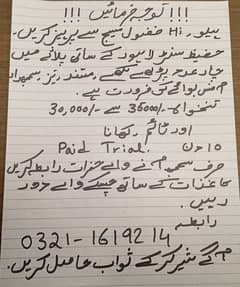 !!! توجہ فرمائیں !!!
ہیلو، Hi فضول میسج سے پرہیز کریں۔
حفیظ سنٹر لاہور کے ساتھ پلازے میں
چار عدد پڑھے لکھے، ہنر مند، سمجھدار
آفس بوائے کی ضرورت ہے۔
تنخواہ 35000/- سے 30,000/-
اوور ٹائم، کھانا
10 دن Paid Trial.
صرف سنجیدہ کام کرنے والے حضرات رابطہ کریں
کاغذات کے ساتھ، چسکے والے دور
رہیں۔
رابطہ
0321-1619214
آگے شیئر کر کے ثواب حاصل کریں۔